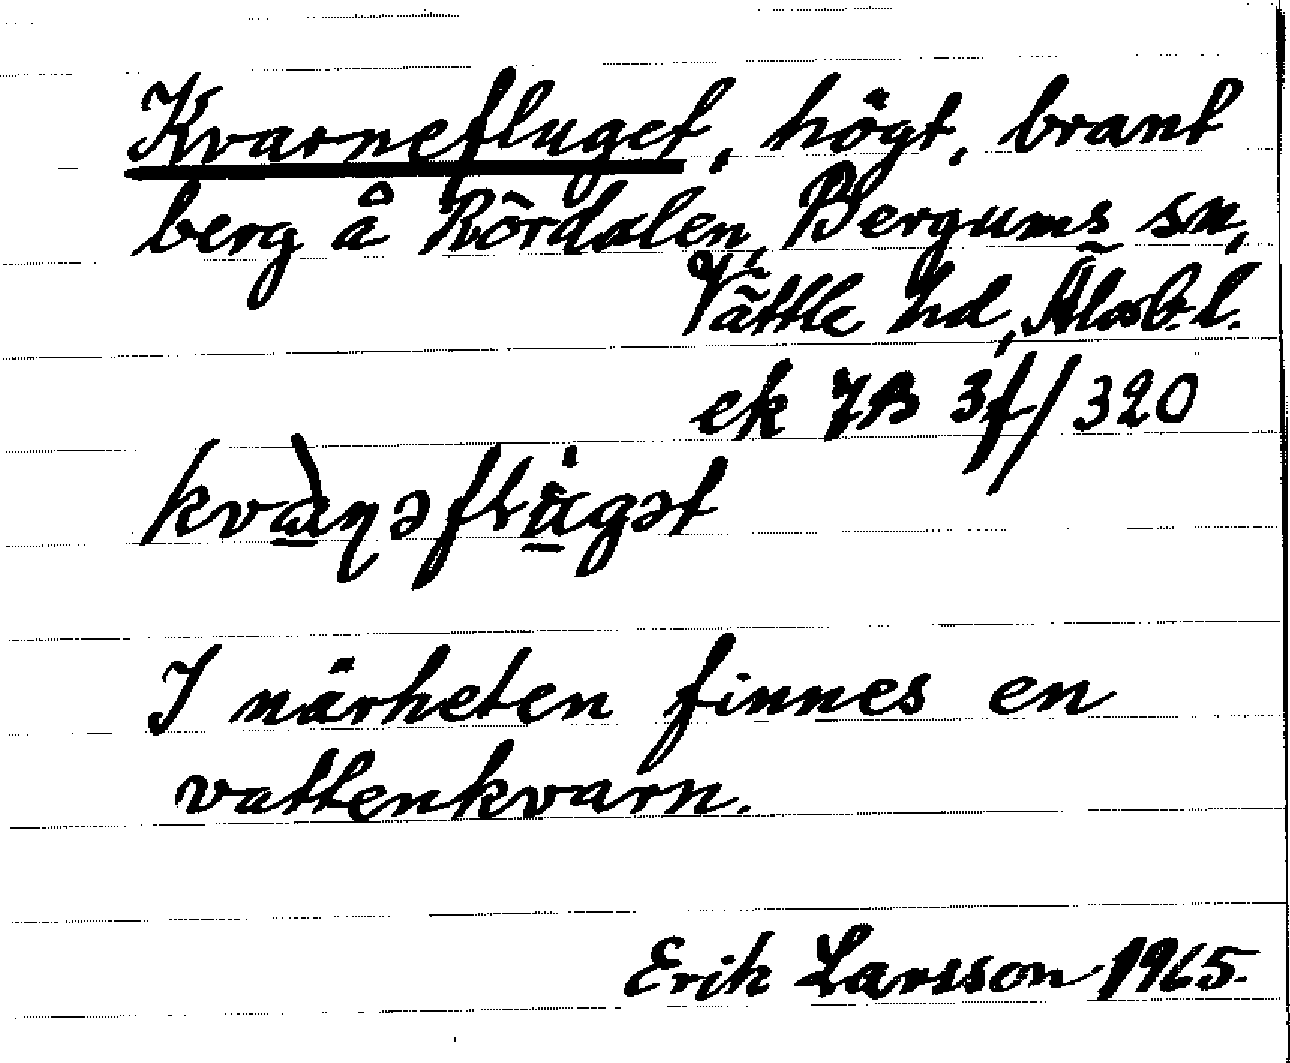 Kvarnefluget, högt, brant
berg å Rördalen, Bergums sn,
Vättle hd, Älvsb. l.
ek 7B 3f/320
I närheten finnes en
vattenkvarn.
Erik Larsson 1965.